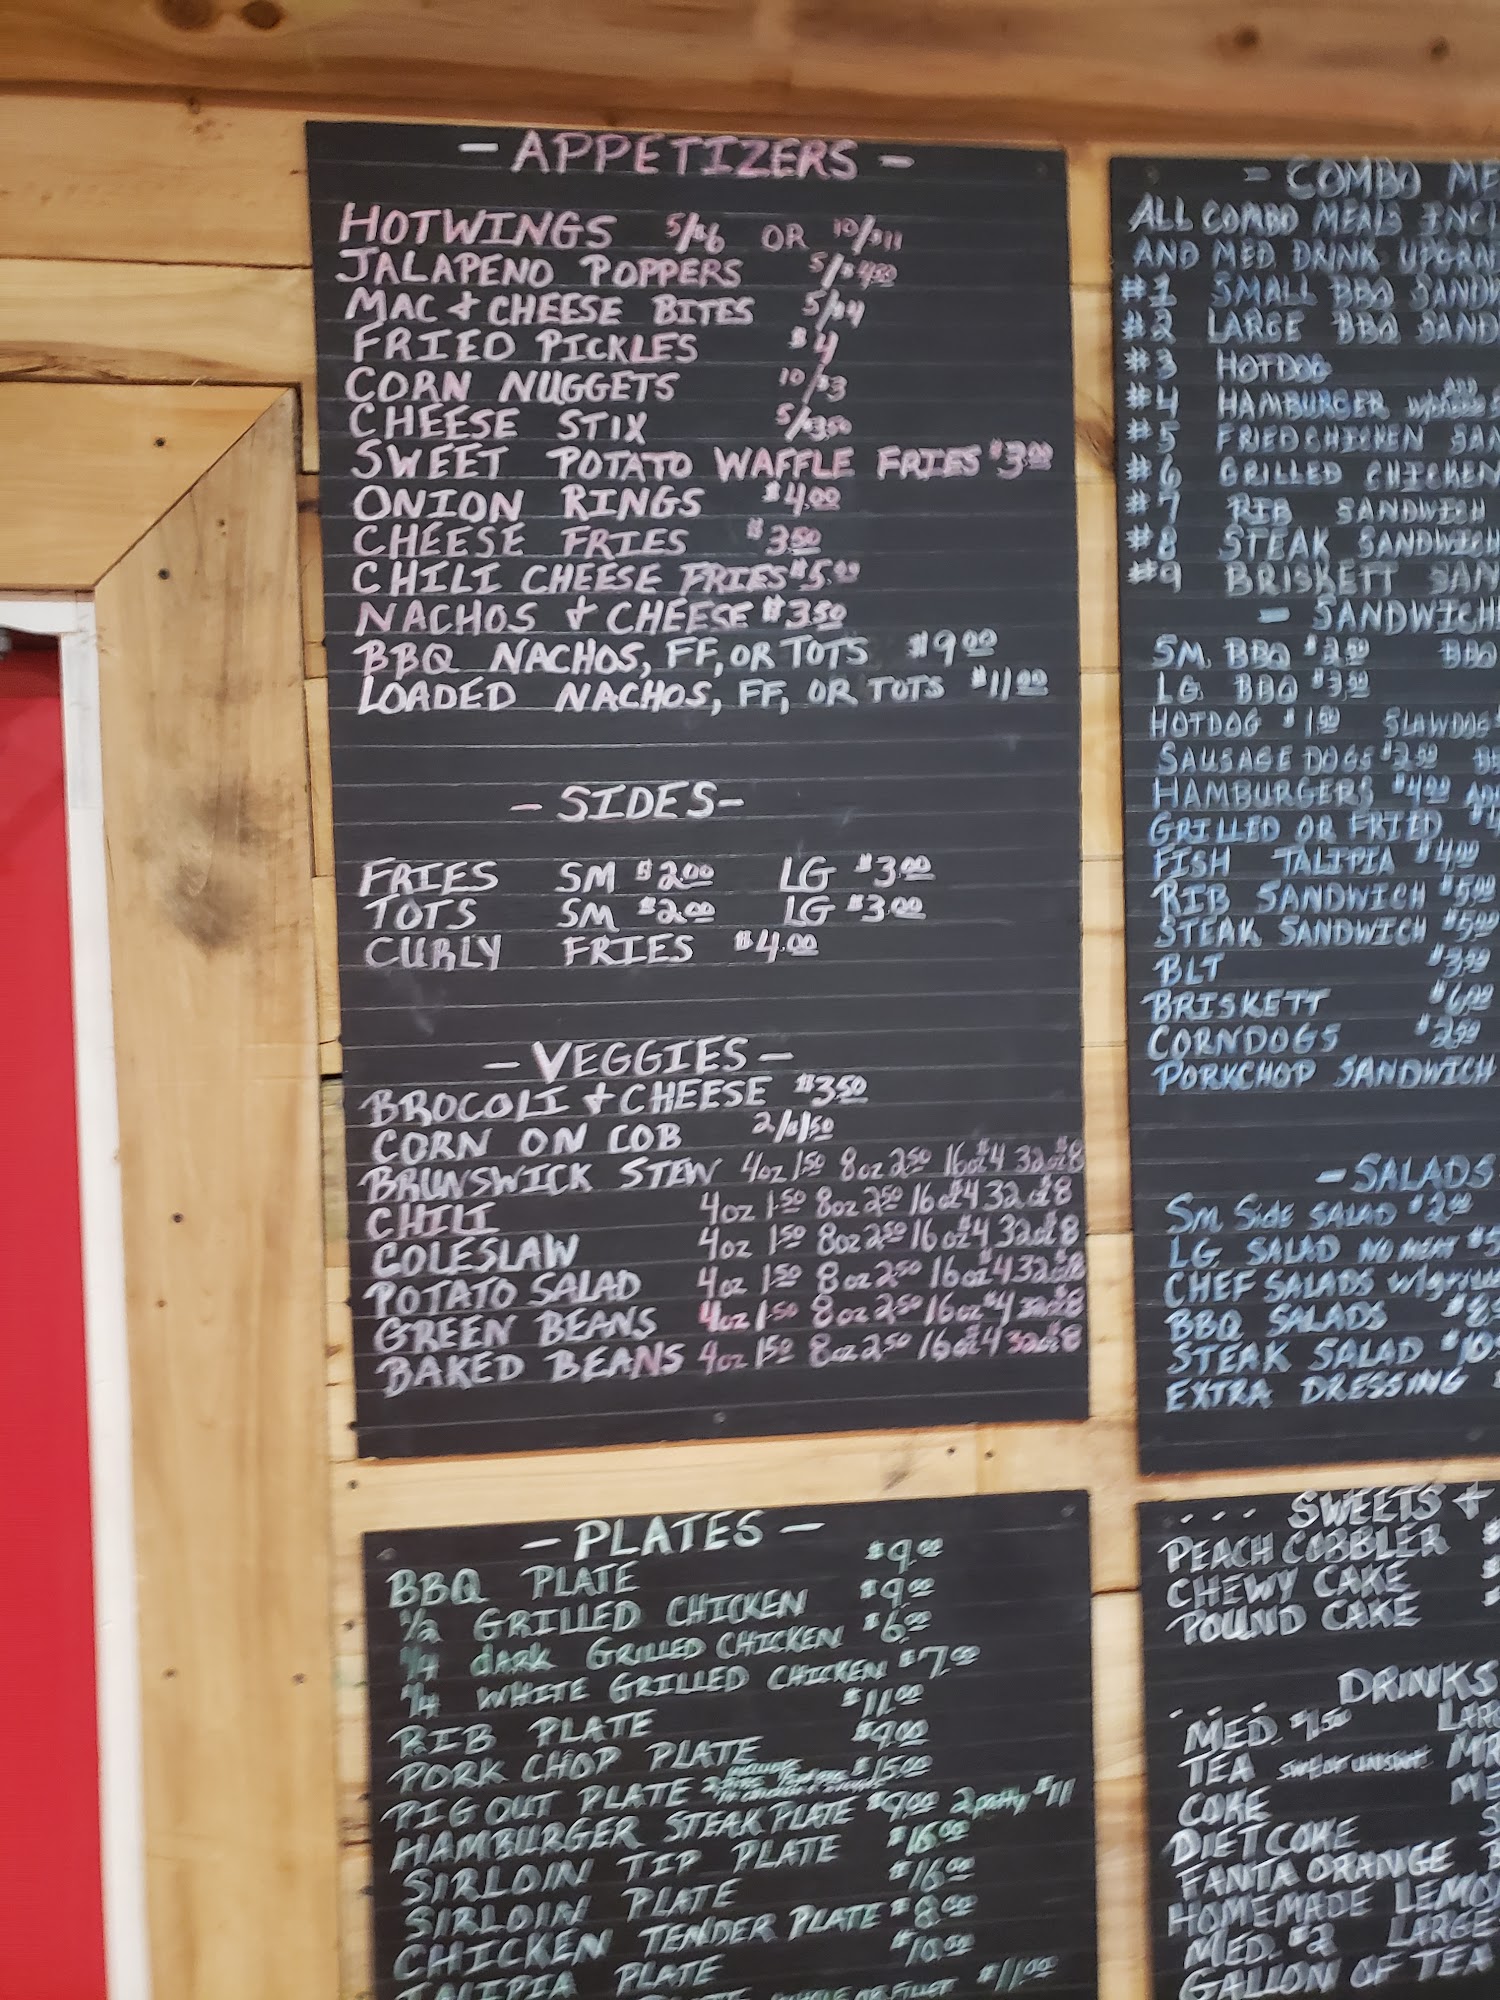 - APPETIZERS -
HOTWINGS 5/$6 OR 10/$11
JALAPENO POPPERS 5/$4.50
MAC & CHEESE BITES 5/$4
FRIED PICKLES $4
CORN NUGGETS 10/$3
CHEESE STIX 5/$3.50
SWEET POTATO WAFFLE FRIES $3.00
ONION RINGS $4.00
CHEESE FRIES $3.50
CHILI CHEESE FRIES $5.00
NACHOS & CHEESE $3.50
BBQ NACHOS, FF, OR TOTS $9.00
LOADED NACHOS, FF, OR TOTS $11.00
- SIDES -
FRIES SM $2.00 LG $3.00
TOTS SM $2.00 LG $3.00
CURLY FRIES $4.00
- VEGGIES -
BROCOLI & CHEESE $3.50
CORN ON COB 2/$1.50
BRUNSWICK STEW 4oz 1.50 8oz 2.50 16oz $4 32oz $8
CHILI 4oz 1.50 8oz 2.50 16oz $4 32oz $8
COLESLAW 4oz 1.50 8oz 2.50 16oz $4 32oz $8
POTATO SALAD 4oz 1.50 8oz 2.50 16oz $4 32oz $8
GREEN BEANS 4oz 1.50 8oz 2.50 16oz $4 32oz $8
BAKED BEANS 4oz 1.50 8oz 2.50 16oz $4 32oz $8
- PLATES -
BBQ PLATE $9.00
1/2 GRILLED CHICKEN $9.00
1/4 DARK GRILLED CHICKEN $6.00
1/4 WHITE GRILLED CHICKEN $7.00
RIB PLATE $11.00
PORK CHOP PLATE $9.00
PIG OUT PLATE $15.00
HAMBURGER STEAK PLATE $9.00 2 patty $11
SIRLOIN TIP PLATE
SIRLOIN PLATE $16.00
CHICKEN TENDER PLATE $8.00
PLATE $10.00
WHOLE OR FILLET $11.00
- COMBO ME
ALL COMBO MEALS INCL
AND MED DRINK UPGRA
#1 SMALL BBQ SANDW
#2 LARGE BBQ SAND
#3 HOTDOG
#4 HAMBURGER
#5 FRIED CHICKEN SAN
#6 GRILLED CHICKEN
#7 RIB SANDWICH
#8 STEAK SANDWICH
#9 BRISKETT SAN
- SANDWICHE
SM. BBQ $2.50 BBQ
LG BBQ $3.50
HOTDOG $1.50 SLAWDOG
SAUSAGE DOGS $2.50
HAMBURGERS $4.00
GRILLED OR FRIED
FISH TALIPIA $4.00
RIB SANDWICH $5.00
STEAK SANDWICH $5.00
BLT
BRISKETT $6.00
CORNDOGS $2.50
PORKCHOP SANDWICH
- SALADS
SM SIDE SALAD $2.00
LG SALAD NO MEAT $5
CHEF SALADS
BBQ SALADS
STEAK SALAD $10
EXTRA DRESSING
... SWEETS +
PEACH COBBLER
CHEWY CAKE
POUND CAKE
DRINKS
MED. $1.50 LARG
TEA
COKE
DIET COKE
FANTA ORANGE
HOMEMADE LEMO
MED. $2 LARGE
GALLON OF TEA